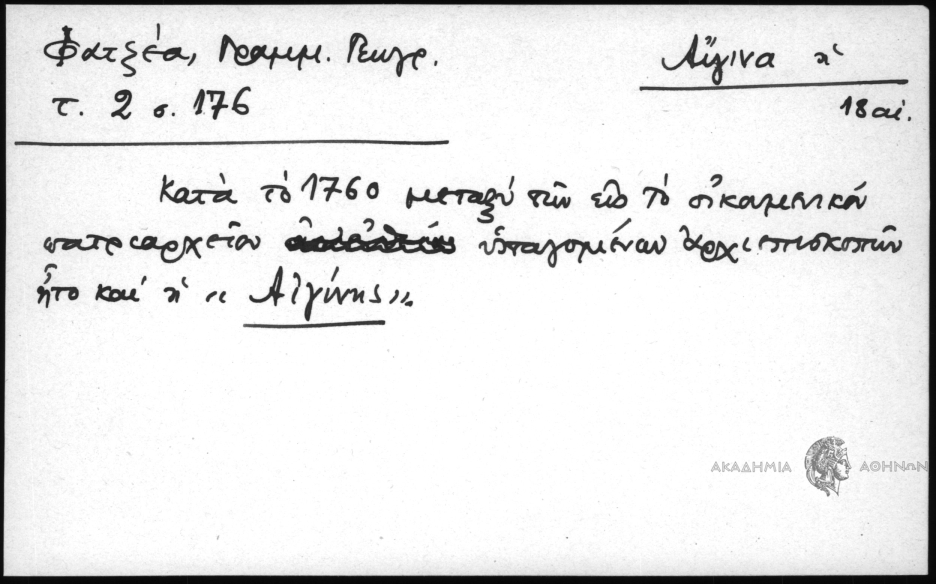 Φατζέα, Γραμμ. Γεωγρ.
τ. 2 σ. 176
Αἴγινα ἡ
18 αἰ.
Κατὰ τὸ 1760 μεταξὺ τῶν εἰς τὸ οἰκουμενικόν
πατριαρχεῖον ὑπαγομένων ἀρχιεπισκοπῶν
ἦτο καὶ ἡ « Αἰγίνης».
ΑΚΑΔΗΜΙΑ ΑΘΗΝΩΝ